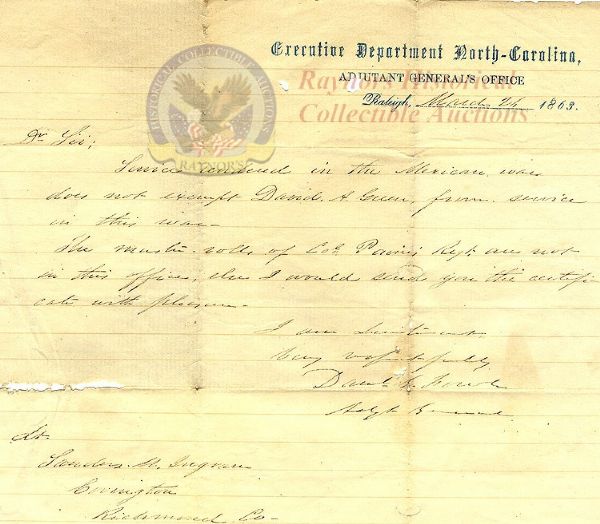 Executive Department North-Carolina,
ADJUTANT GENERAL'S OFFICE
Raleigh, March 24 1863.
HISTORICAL COLLECTIBLE AUCTIONS
RAYNOR'S
Raynor's Historical
Collectible Auctions
Dr Sir;
Service rendered in the Mexican war
does not exempt David A. Green, from service
in this war.
The muster rolls of Col Paine's Regt. are not
in this office, else I would send you the certifi
cate with pleasure.
I am Lieutenant,
Very respectfully
Danl G. Fowle
Adjt General
Lt.
Sanders M. Ingram
Covington
Richmond Co-